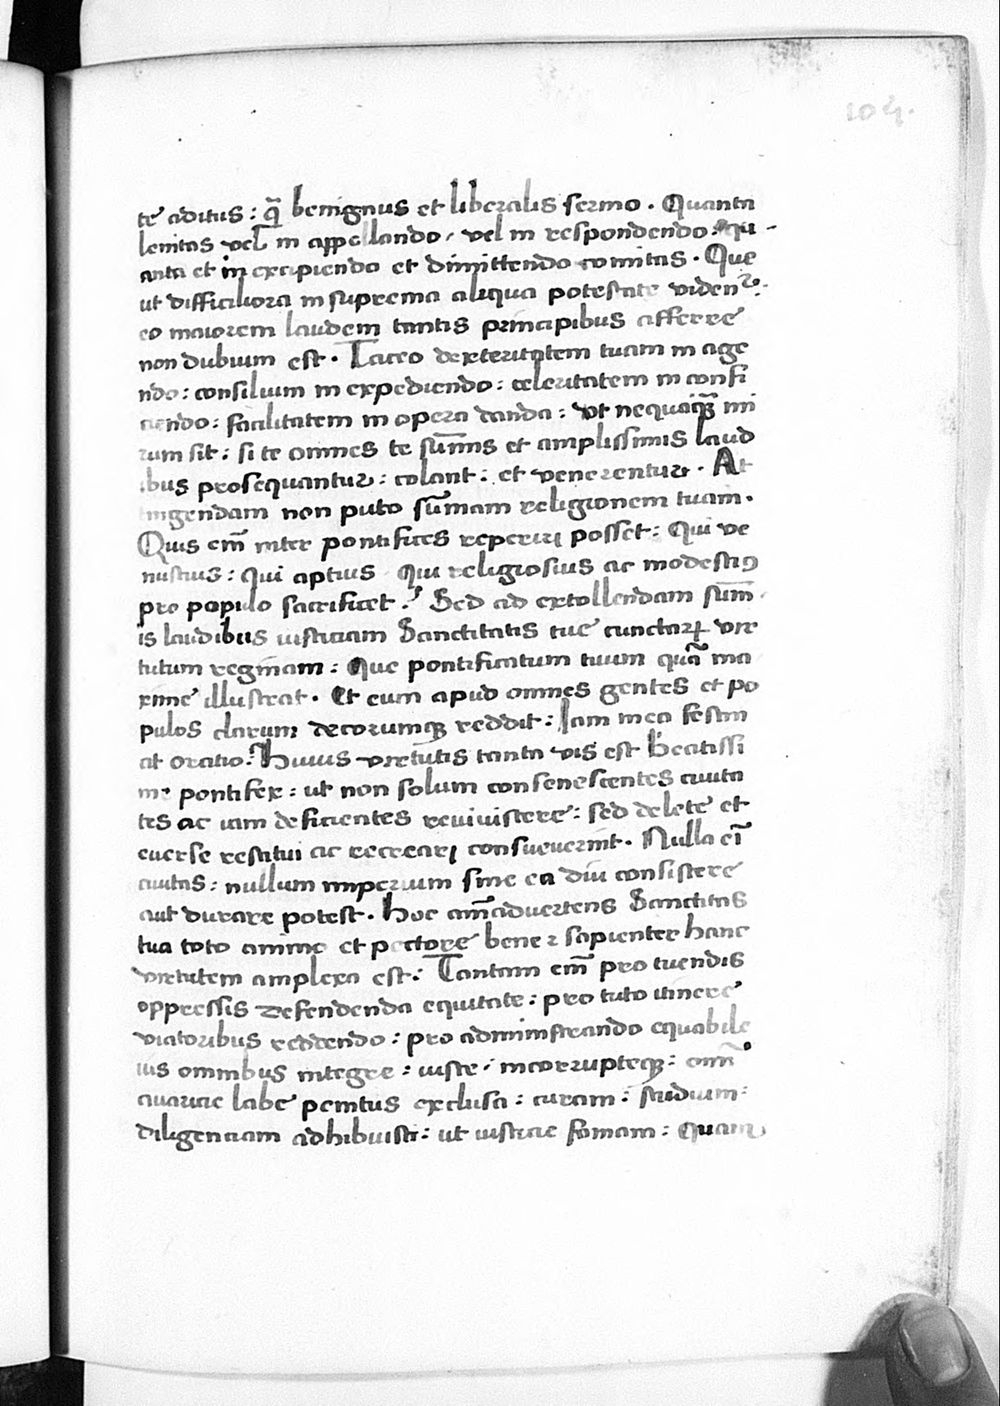 104.
te aditus : q̃ benignus et liberalis sermo . Quanta
lenitas vel in appellando / vel in respondendo : qu -
anta et in excipiendo et dimittendo comitas . Que
ut difficiliora in suprema aliqua potestate viden̄ᵗ .
eo maiorem laudem tantis principibus afferre
non dubium est . Taceo dexteritatem tuam in age
ndo : consilium in expediendo : celeritatem in confi
ciendo : facilitatem in opera danda : Vt nequaq̃ȝ mi
rum sit : si te omnes te sum̃is et amplissimis laud
ibus prosequantur : colant : et venerentur . At
tingendam non puto sum̃am religionem tuam .
Quis em̃ inter pontifices reperiri posset : Qui ve
nustius : Qui aptius Qui religiosius ac modestiꝰ
pro populo sacrificet .ʾ Sed ad extollendam sum̃
is laudibus iusticiam Sanctitatis tue cunctaꝝ vir
tutum reginam : Que pontificatum tuum quã ma
xime illustrat . Et eum apud omnes gentes et po
pulos clarum decorumqȝ reddit : Iam mea festin
at oratio : Huius virtutis tanta vis est Beatissi
me pontifex : ut non solum consenescentes ciuita
tes ac iam deficientes reuiuiscere : sed delete et
euerse restitui ac recreari consueuerint . Nulla ei᷉
ciuitas : nullum imperium sine ea diu consistere
aut durare potest . Hoc am̃aduertens Sanctitas
tua toto animo et pectore bene ⁊ sapienter hanc
virtutem amplexa est : Tantam em̃ pro tuendis
oppressis defendenda equitate : pro tuto itinere
viatoribus reddendo : pro administrando equabile
ius omnibus integre : iuste / incorrupteqȝ : omĩ
auaricie labe penitus exclusa : curam : studium :
diligenciam adhibuisti : ut iusticie famam : quam